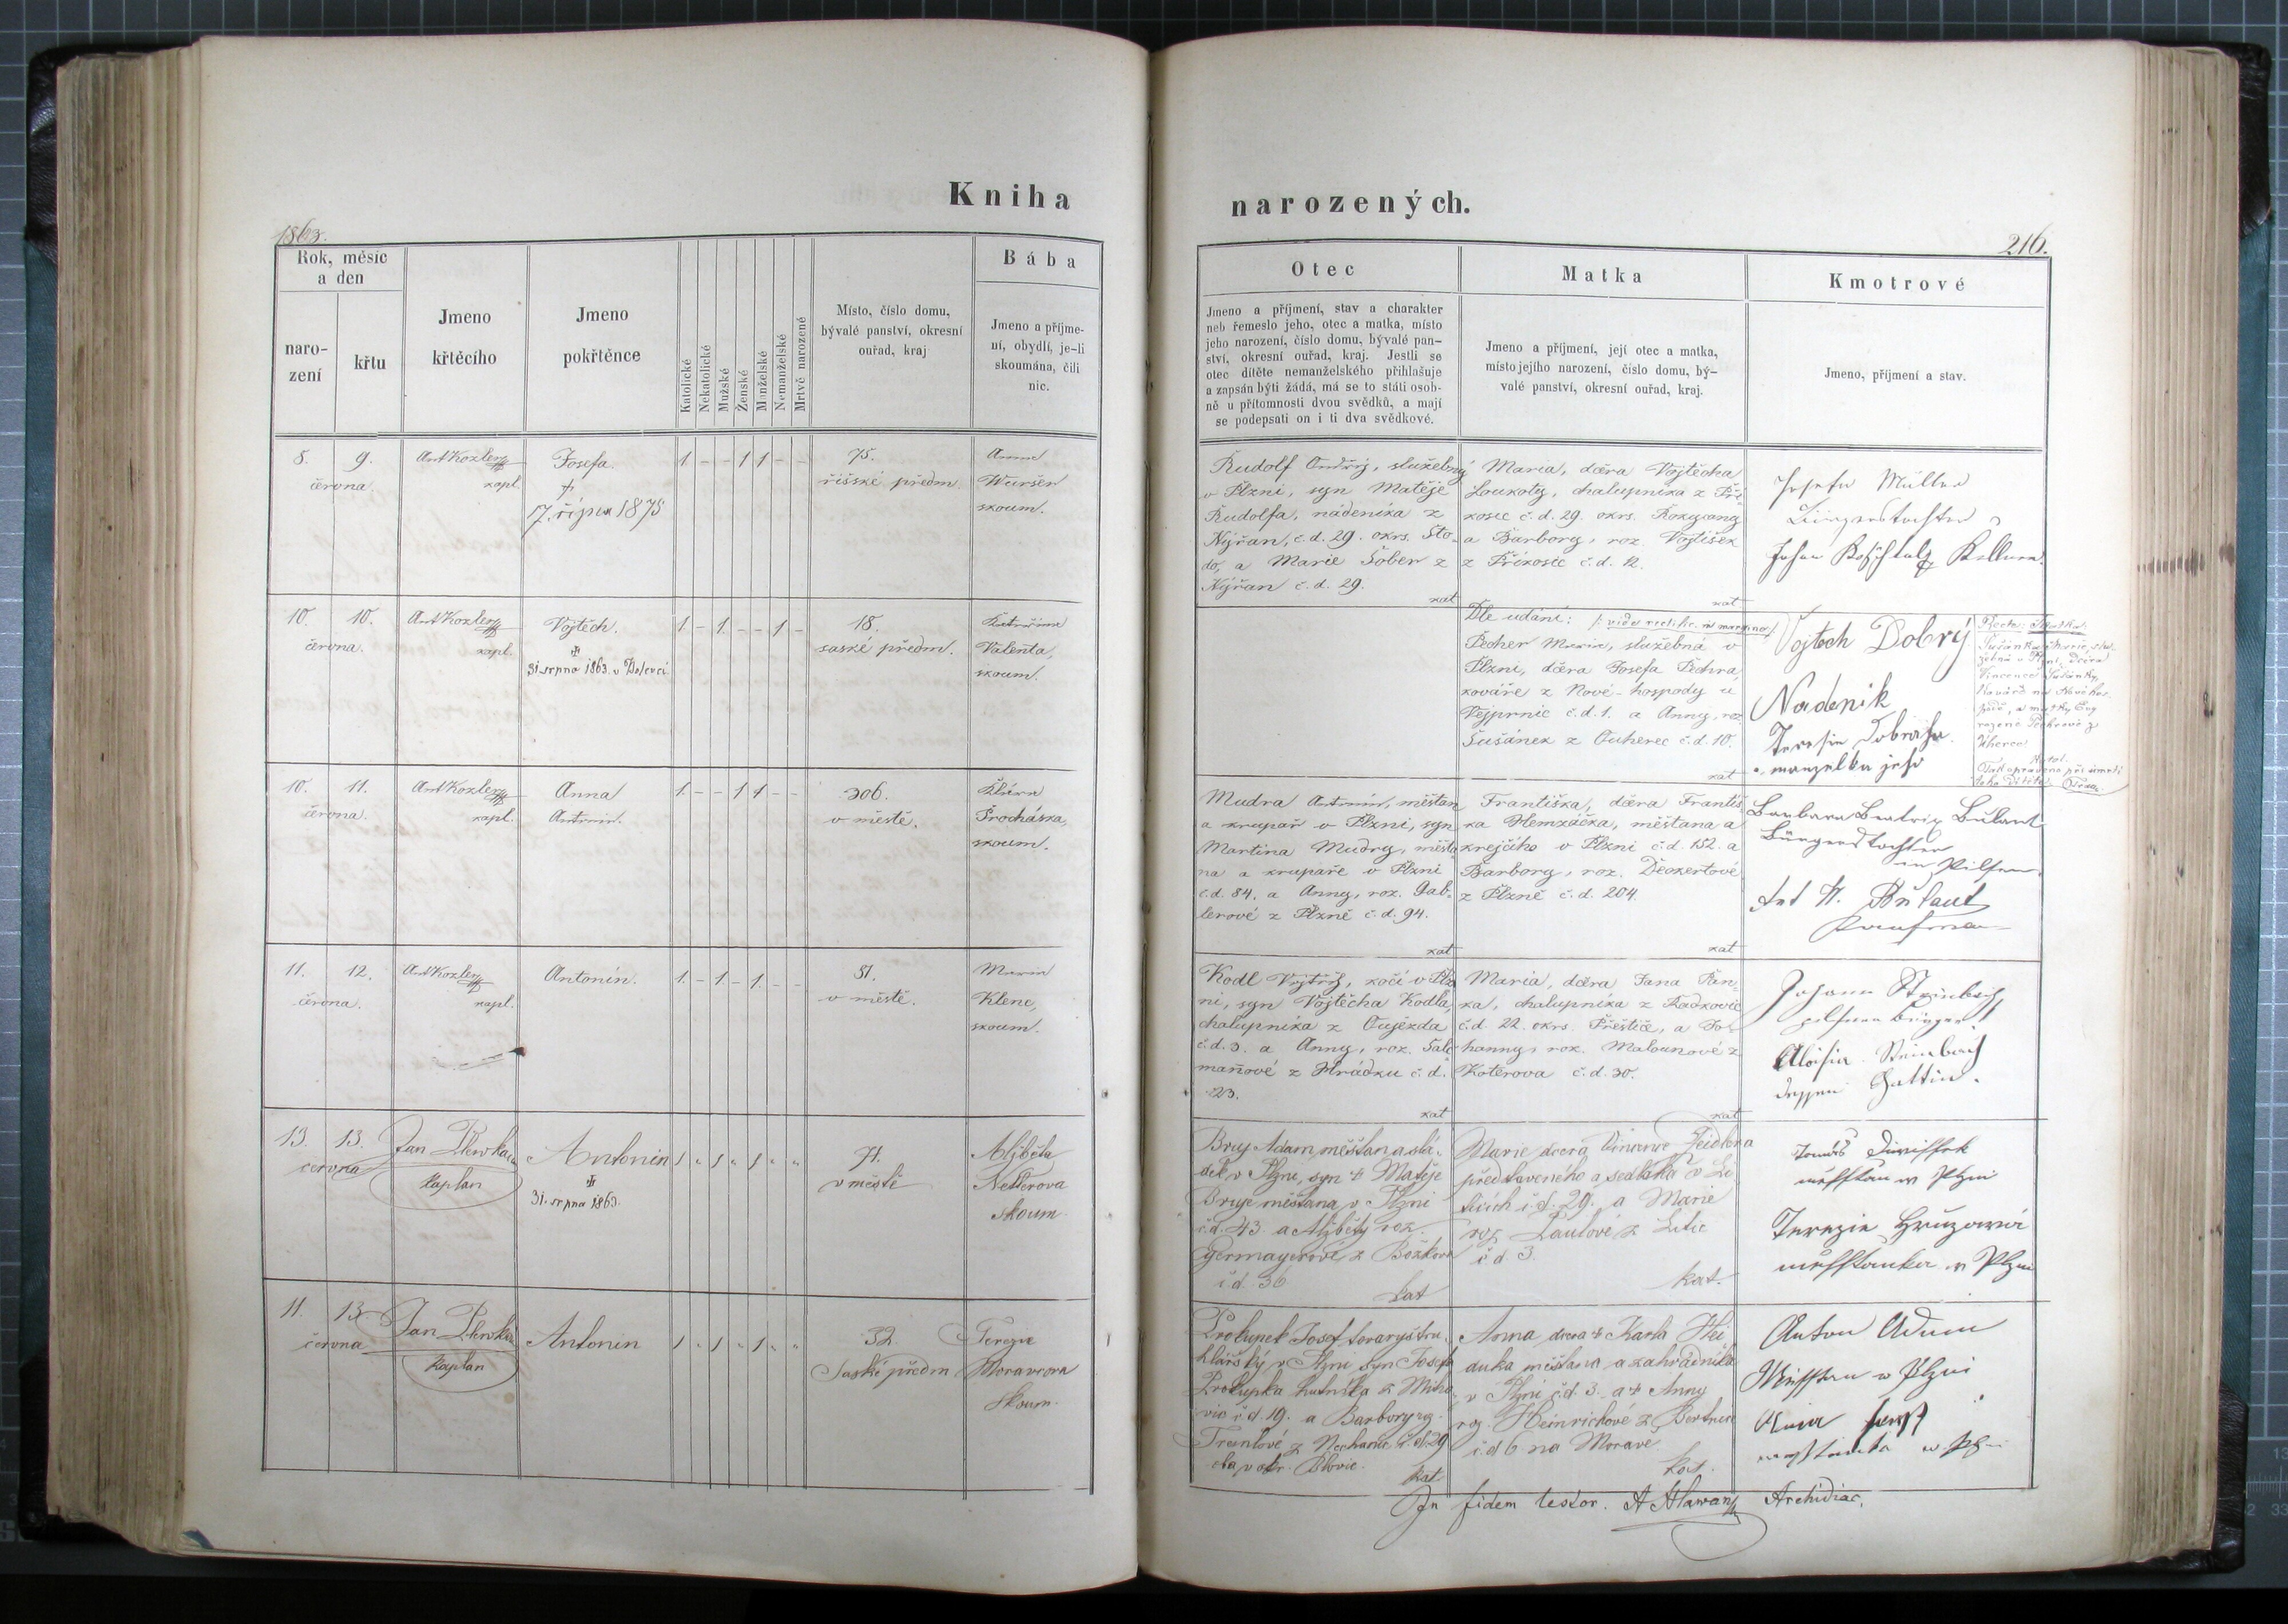 Kniha
narozených.
1863.
216.
Rok, měsíc
a den
naro-
zení
křtu
Jmeno
křtěcího
Jmeno
pokřtěnce
Katolické
Nekatolické
Mužské
Ženské
Manželské
Nemanželské
Mrtvě narozené
Místo, číslo domu,
bývalé panství, okresní
ouřad, kraj
Bába
Jmeno a příjme-
ní, obydlí, je-li
skoumána, čili
nic.
Otec
Jmeno a příjmení, stav a charakter
neb řemeslo jeho, otec a matka, místo
jeho narození, číslo domu, bývalé pan-
ství, okresní ouřad, kraj. Jestli se
otec dítěte nemanželského přihlašuje
a zapsán býti žádá, má se to státi osob-
ně u přítomnosti dvou svědků, a mají
se podepsati on i ti dva svědkové.
Matka
Jmeno a příjmení, její otec a matka,
místo jejího narození, číslo domu, bý-
valé panství, okresní ouřad, kraj.
Kmotrové
Jmeno, příjmení a stav.
8. 9.
června.
Ant Kozler
kapl.
Josefa.
†
17. října 1875
1 - - 1 1 - -
75.
říšské předm.
Anna
skoum.
Rudolf Ondřej, služebný
v Plzni, syn Matěje
Rudolfa, nádeníka z
Nýřan, č.d. 29. okrs. Sto-
do, a Marie Šober z
Nýřan č.d. 29.
kat
Maria, dcera Vojtěcha
Loukoty, chalupníka z Pří-
kosic č.d. 29. okrs. Rokycany
a Barbory, roz. Vojtíšek
z Příkosic č.d. 12.
kat
Josefa Müller
Bürgerstochter
Johan
10. 10.
června.
Ant Kozler
kapl.
Vojtěch.
†
31. srpna 1863. v
1 - 1 - - 1 -
18.
saské předm.
Kateřina
Valenta,
skoum.
Dle udání:
Pecher Maria, služebná v
Plzni, dcera Josefa Pechra,
kováře z Nové-hospody u
Vejprnic č.d. 1. a Anny, roz.
Sušánek z Ouherec č.d. 10.
kat
Vojtech Dobrý
Nadenik
Teresie
manzelka jeho
10. 11.
června.
Ant Kozler
kapl.
Anna
Antonin.
1 - - 1 1 - -
306.
v městě.
Klára
Procháska,
skoum.
Mudra Antonín, měštan
a krupař v Plzni, syn
Martina Mudry, měšta-
na a krupaře v Plzni
č.d. 84. a Anny, roz. Gab-
lerové z Plzně č.d. 94.
kat
Františka, dcera Františ-
ka Hemzáčka, měštana a
krejčího v Plzni č.d. 152. a
Barbory, roz. Deckertové
z Plzně č.d. 204.
kat
Barbara Beatrix Bulant
Bürgerstochter
in Pilsen
Kaufman
11. 12.
června.
Ant Kozler
kapl.
Antonín.
1 - 1 - 1 - -
51.
v městě.
Maria
Klenc,
skoum.
Kodl Vojtěch, kočí v Plz-
ni, syn Vojtěcha Kodla,
chalupníka z Oujezda
č.d. 3. a Anny, roz. Salc-
manové z Hrádku č.d.
23.
kat
Maria, dcera Jana Pan-
ka, chalupníka z Radkovic
č.d. 22. okrs. Přeštice, a Jo-
hanny, roz. Malounové z
Koterova č.d. 30.
kat
Johann Steinbach
pilsner bürger
Aloisia Steinbach
dessen Gattin.
13. 13.
června
Jan Plewka
kaplan
Antonin
†
31. srpna 1863.
71.
v městě
Alžběta
Netterova
skoum.
Bruj Adam měšťan a slá-
dek v Plzni, syn † Matěje
Bruje měštana v Plzni
č.d. 43 a Alžběty roz.
Germayerové z Božkova
č.d. 36
kat
Marie dcera Vincence Feidlera
představeného a sedláka v Li-
ticích č.d. 29. a Marie
roz. Paulové z Litic
č.d. 3.
kat.
měsstan w Plzni
Terezie Hruzowá
měsstanka w Plzni
11. 13.
června
Jan Plewka
Kaplan
Antonin
32.
Saské předm
Terezie
Moravcova
skoum.
Prokupek Josef tovaryš tru-
hlářský v Plzni syn Josefa
č.d. 19. a Barbory roz.
kat
Anna dcera † Karla Hei-
duka měštana a zahradníka
v Plzni č.d. 3. a † Anny
roz. Heinrichové z
č.d. 6 na Moravě
kat.
Anton Adam
Měsstan w Plzni
In fidem testor. A Hlawan Archidiac.